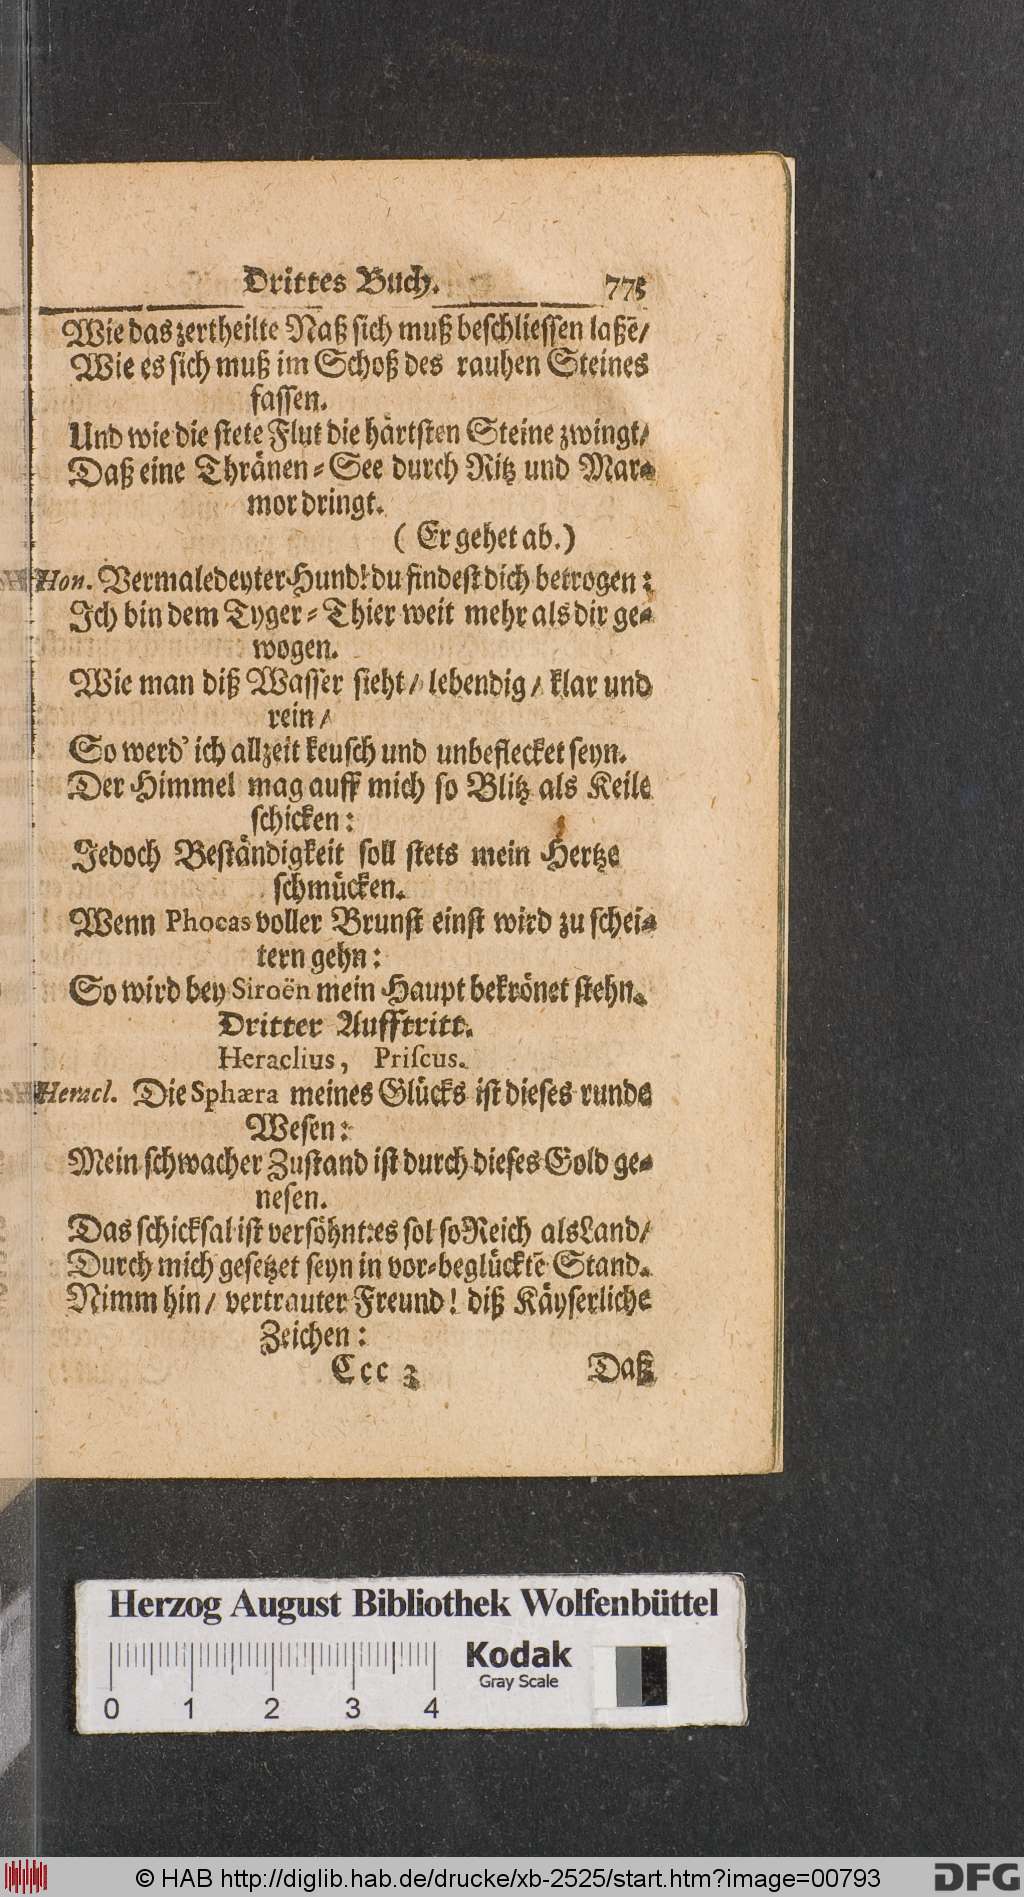 Drittes Buch. 775
Wie das zertheilte Naß sich muß beschliessen laßẽ/
Wie es sich muß im Schoß des rauhen Steines
fassen.
Und wie die stete Flut die härtsten Steine zwingt/
Daß eine Thränen-See durch Ritz und Mar-
mor dringt.
( Er gehet ab.)
Hon. Vermaledeyter Hund! du findest dich betrogen:
Ich bin dem Tyger-Thier weit mehr als dir ge-
wogen.
Wie man diß Wasser sieht/ lebendig/ klar und
rein/
So werd' ich allzeit keusch und unbeflecket seyn.
Der Himmel mag auff mich so Blitz als Keile
schicken:
Jedoch Beständigkeit soll stets mein Hertze
schmücken.
Wenn Phocas voller Brunst einst wird zu schei-
tern gehn:
So wird bey Siroën mein Haupt bekrönet stehn.
Dritter Aufftritt.
Heraclius, Priscus.
Heracl. Die Sphæra meines Glücks ist dieses runde
Wesen:
Mein schwacher Zustand ist durch dieses Gold ge-
nesen.
Das schicksal ist versöhnt: es sol so Reich als Land/
Durch mich gesetzet seyn in vor-beglücktẽ Stand.
Nimm hin/ vertrauter Freund! diß Käyserliche
Zeichen:
Ccc 3 Daß
Herzog August Bibliothek Wolfenbüttel
Kodak
Gray Scale
0 1 2 3 4
© HAB http://diglib.hab.de/drucke/xb-2525/start.htm?image=00793
DFG